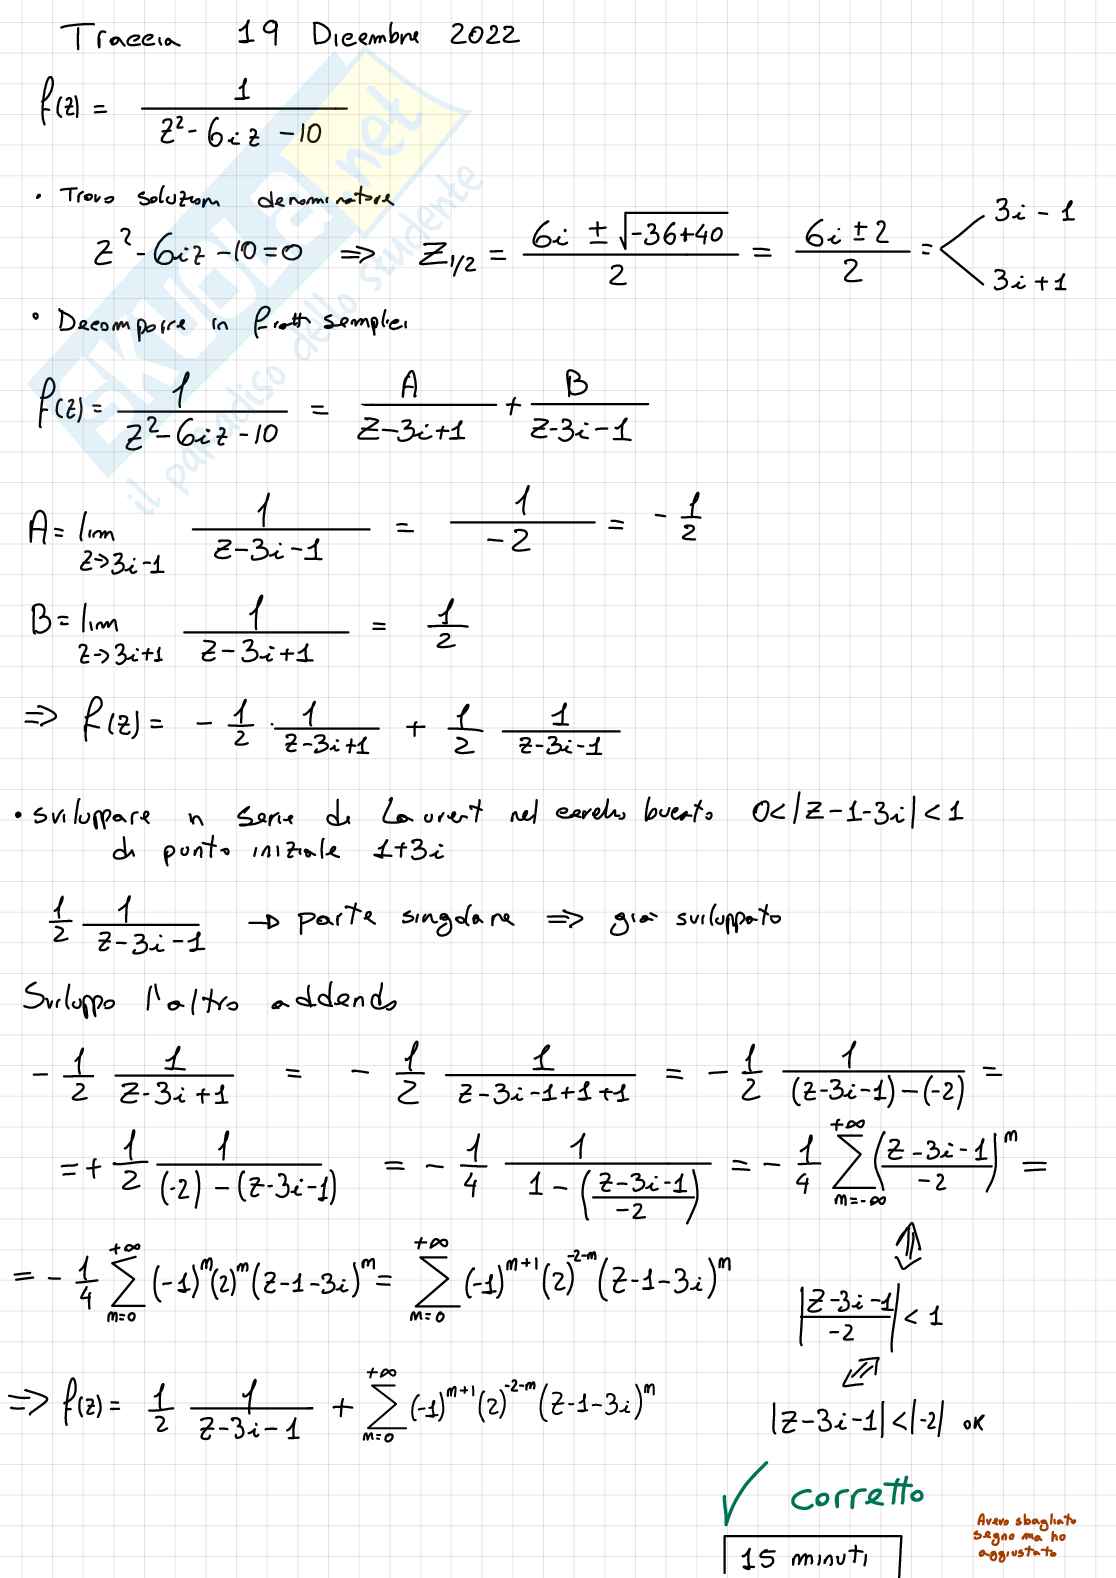 Traccia 19 Dicembre 2022
f(z) = 1 / (z² - 6iz - 10)
• Trovo soluzioni denominatore
z² - 6iz - 10 = 0 ⇒ z₁/₂ = (6i ± √(-36+40)) / 2 = (6i ± 2) / 2 = 3i - 1
3i + 1
• Decomporre in fratti semplici
f(z) = 1 / (z² - 6iz - 10) = A / (z - 3i + 1) + B / (z - 3i - 1)
A = lim z→3i-1 1 / (z - 3i - 1) = 1 / -2 = - 1/2
B = lim z→3i+1 1 / (z - 3i + 1) = 1/2
⇒ f(z) = - 1/2 · 1 / (z - 3i + 1) + 1/2 1 / (z - 3i - 1)
• sviluppare in serie di Laurent nel cerchio bucato 0 < |z - 1 - 3i| < 1
di punto iniziale 1 + 3i
1/2 1 / (z - 3i - 1) → parte singolare ⇒ già sviluppato
Sviluppo l'altro addendo
- 1/2 1 / (z - 3i + 1) = - 1/2 1 / (z - 3i - 1 + 1 + 1) = - 1/2 1 / ((z - 3i - 1) - (-2)) =
= + 1/2 1 / ((-2) - (z - 3i - 1)) = - 1/4 1 / (1 - ((z - 3i - 1) / -2)) = - 1/4 ∑ m=-∞ +∞ ((z - 3i - 1) / -2)^m =
= - 1/4 ∑ m=0 +∞ (-1)^m (2)^m (z - 1 - 3i)^m = ∑ m=0 +∞ (-1)^(m+1) (2)^(-2-m) (z - 1 - 3i)^m
⇕
|(z - 3i - 1) / -2| < 1
⇔
⇒ f(z) = 1/2 1 / (z - 3i - 1) + ∑ m=0 +∞ (-1)^(m+1) (2)^(-2-m) (z - 1 - 3i)^m
|z - 3i - 1| < |-2| OK
✓ corretto
15 minuti
Avevo sbagliato
segno ma ho
aggiustato
SKUOLA.net
il paradiso dello studente